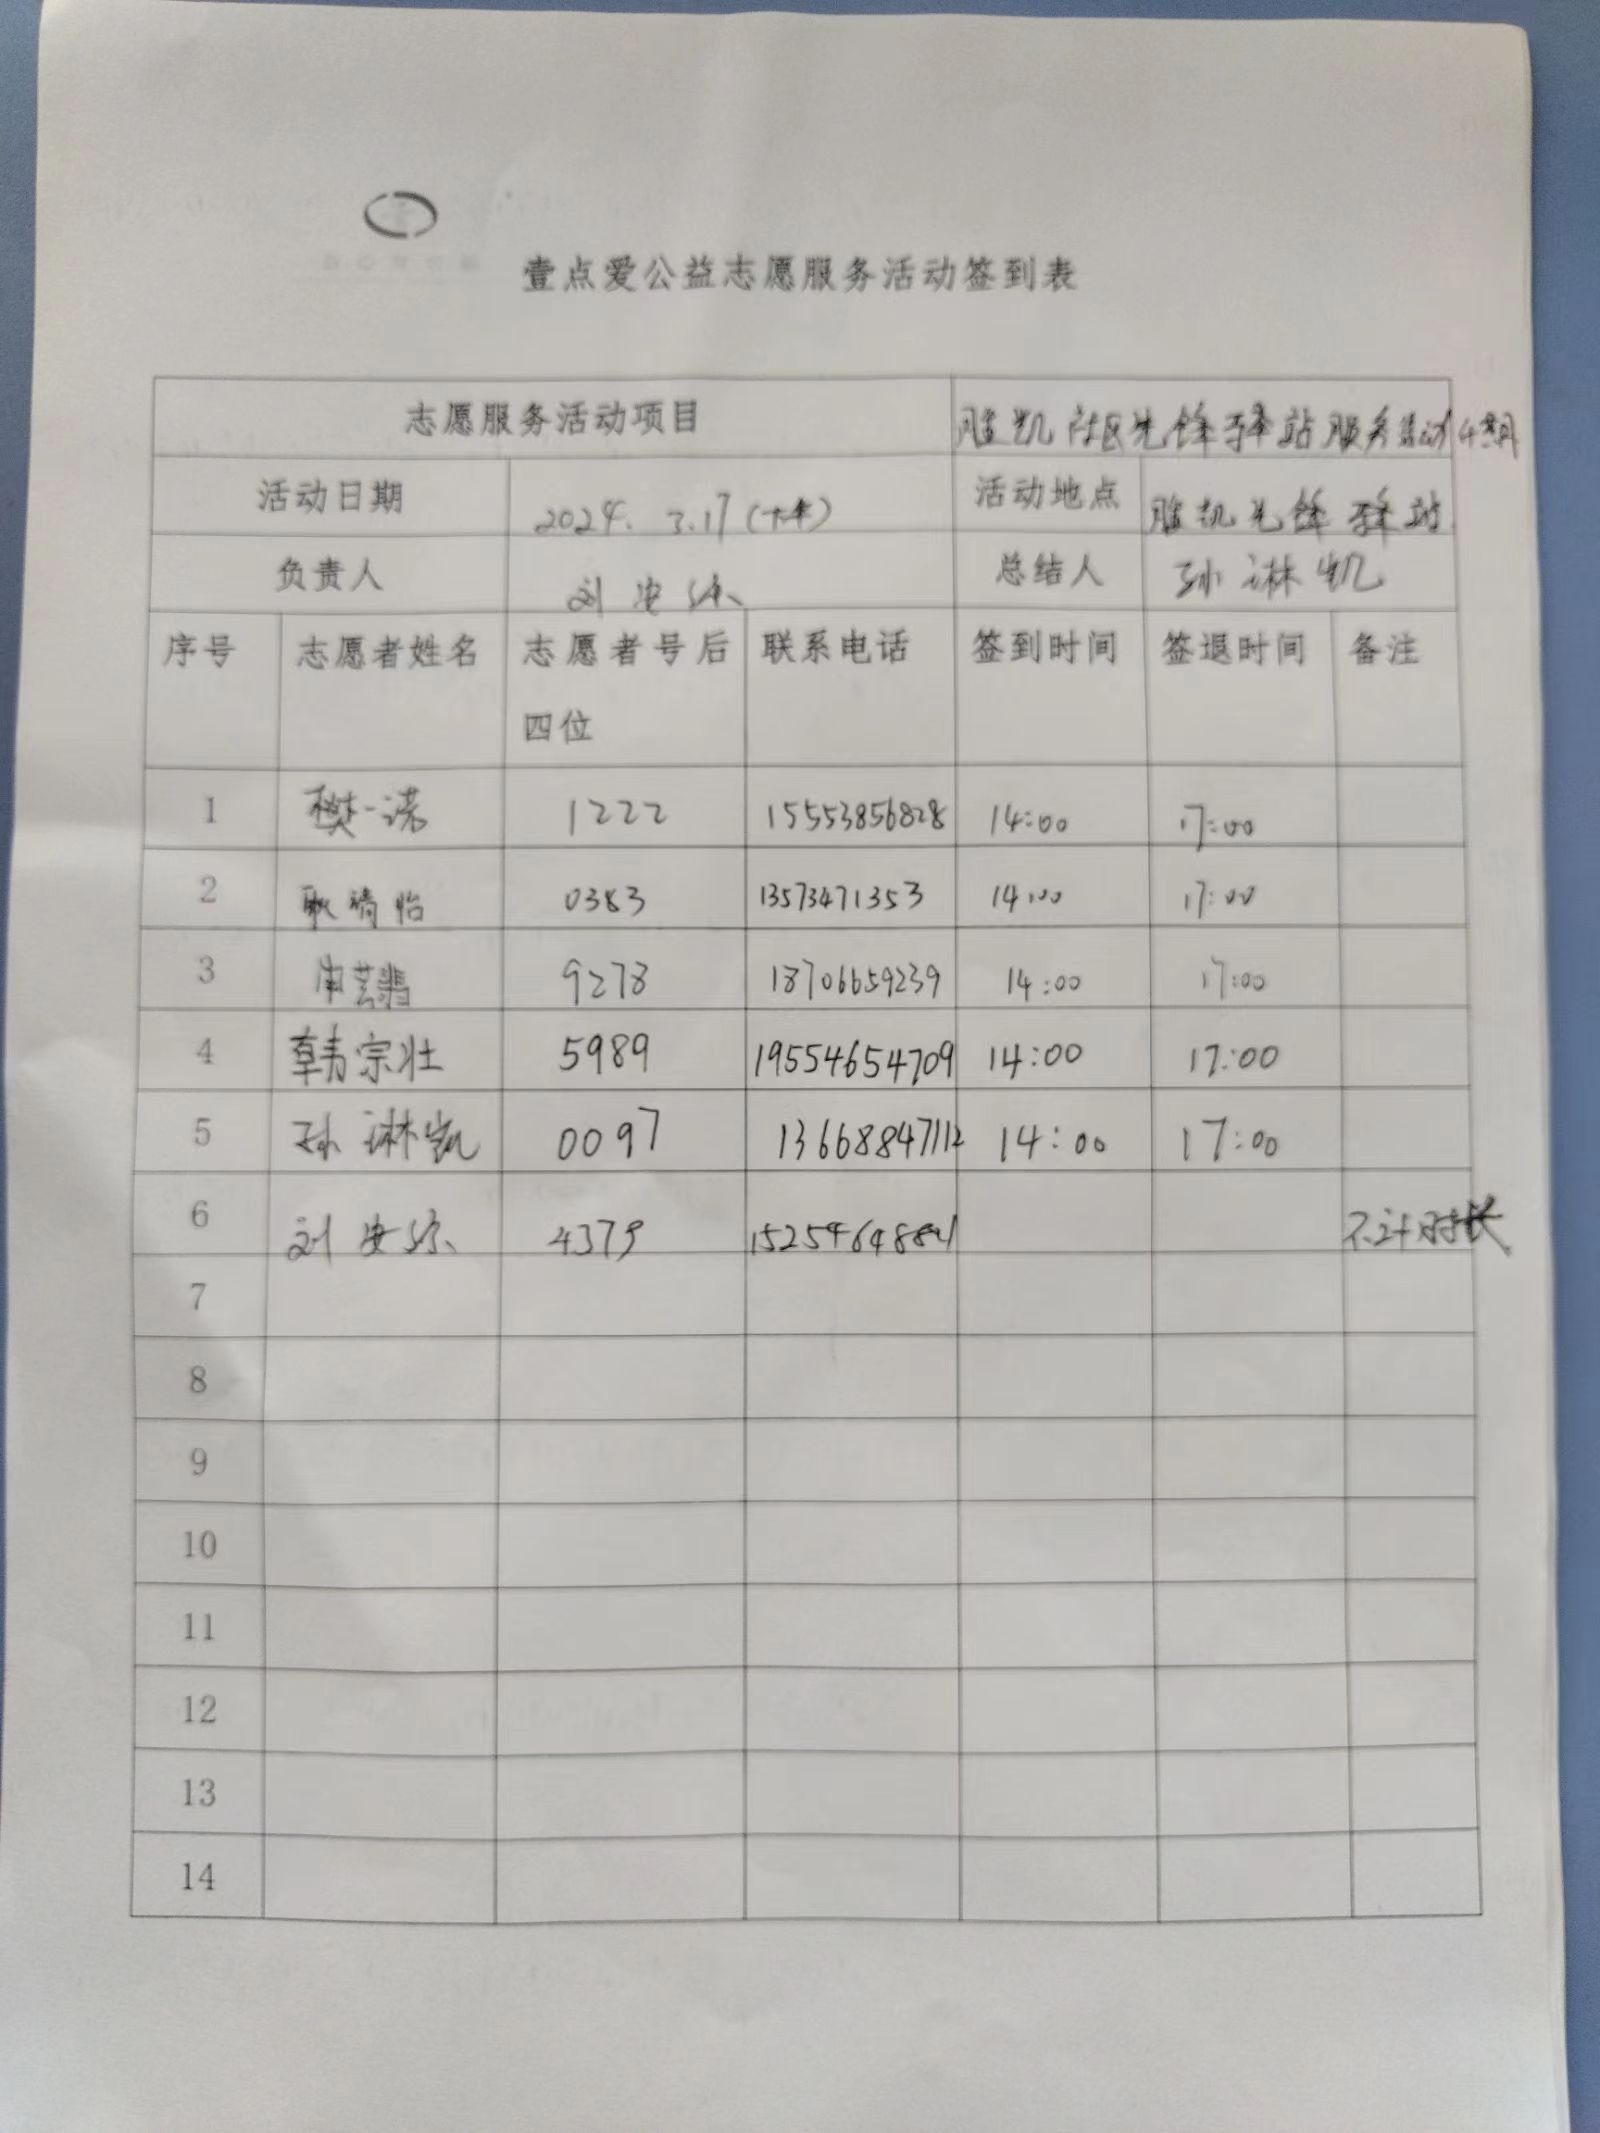 壹点爱公益志愿服务活动签到表
志愿服务活动项目 胜凯社区先锋驿站服务活动4期
活动日期 2024.3.17(下午) 活动地点 胜凯先锋驿站
负责人 刘安 总结人 孙淋凯
序号 志愿者姓名 志愿者号后四位 联系电话 签到时间 签退时间 备注
1 樊一诺 1222 15553856828 14:00 17:00
2 耿琦怡 0383 13573471353 14:00 17:00
3 9278 18706659239 14:00 17:00
4 韩宗壮 5989 19554654709 14:00 17:00
5 孙淋凯 0097 13668847112 14:00 17:00
6 刘安 4379 不计时长
7
8
9
10
11
12
13
14